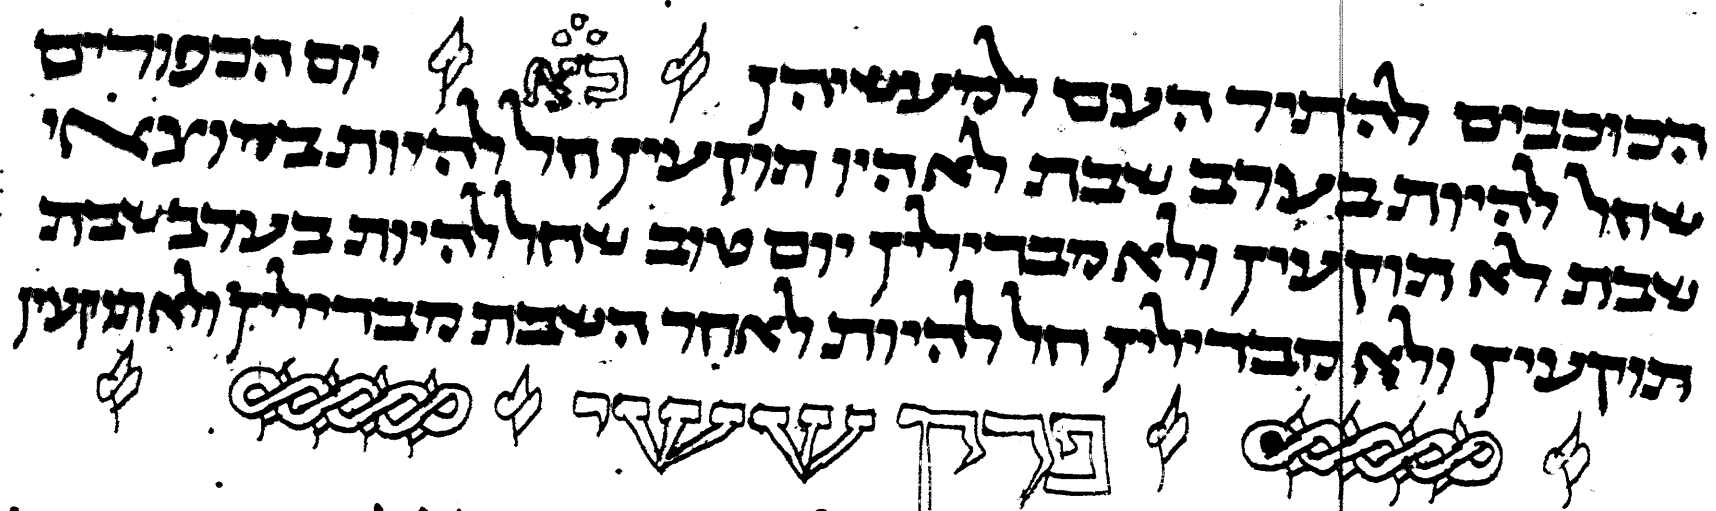 הכוכבים להתיר העם למעשיהן כא יום הכפורים
שחל להיות בערב שבת לא היו תוקעין חל להיות במוצאי
שבת לא תוקעין ולא מבדילין יום טוב שחל להיות בערב שבת
תוקעין ולא מבדילין חל להיות לאחר השבת מבדילין ולא תוקעין
פרק ששי